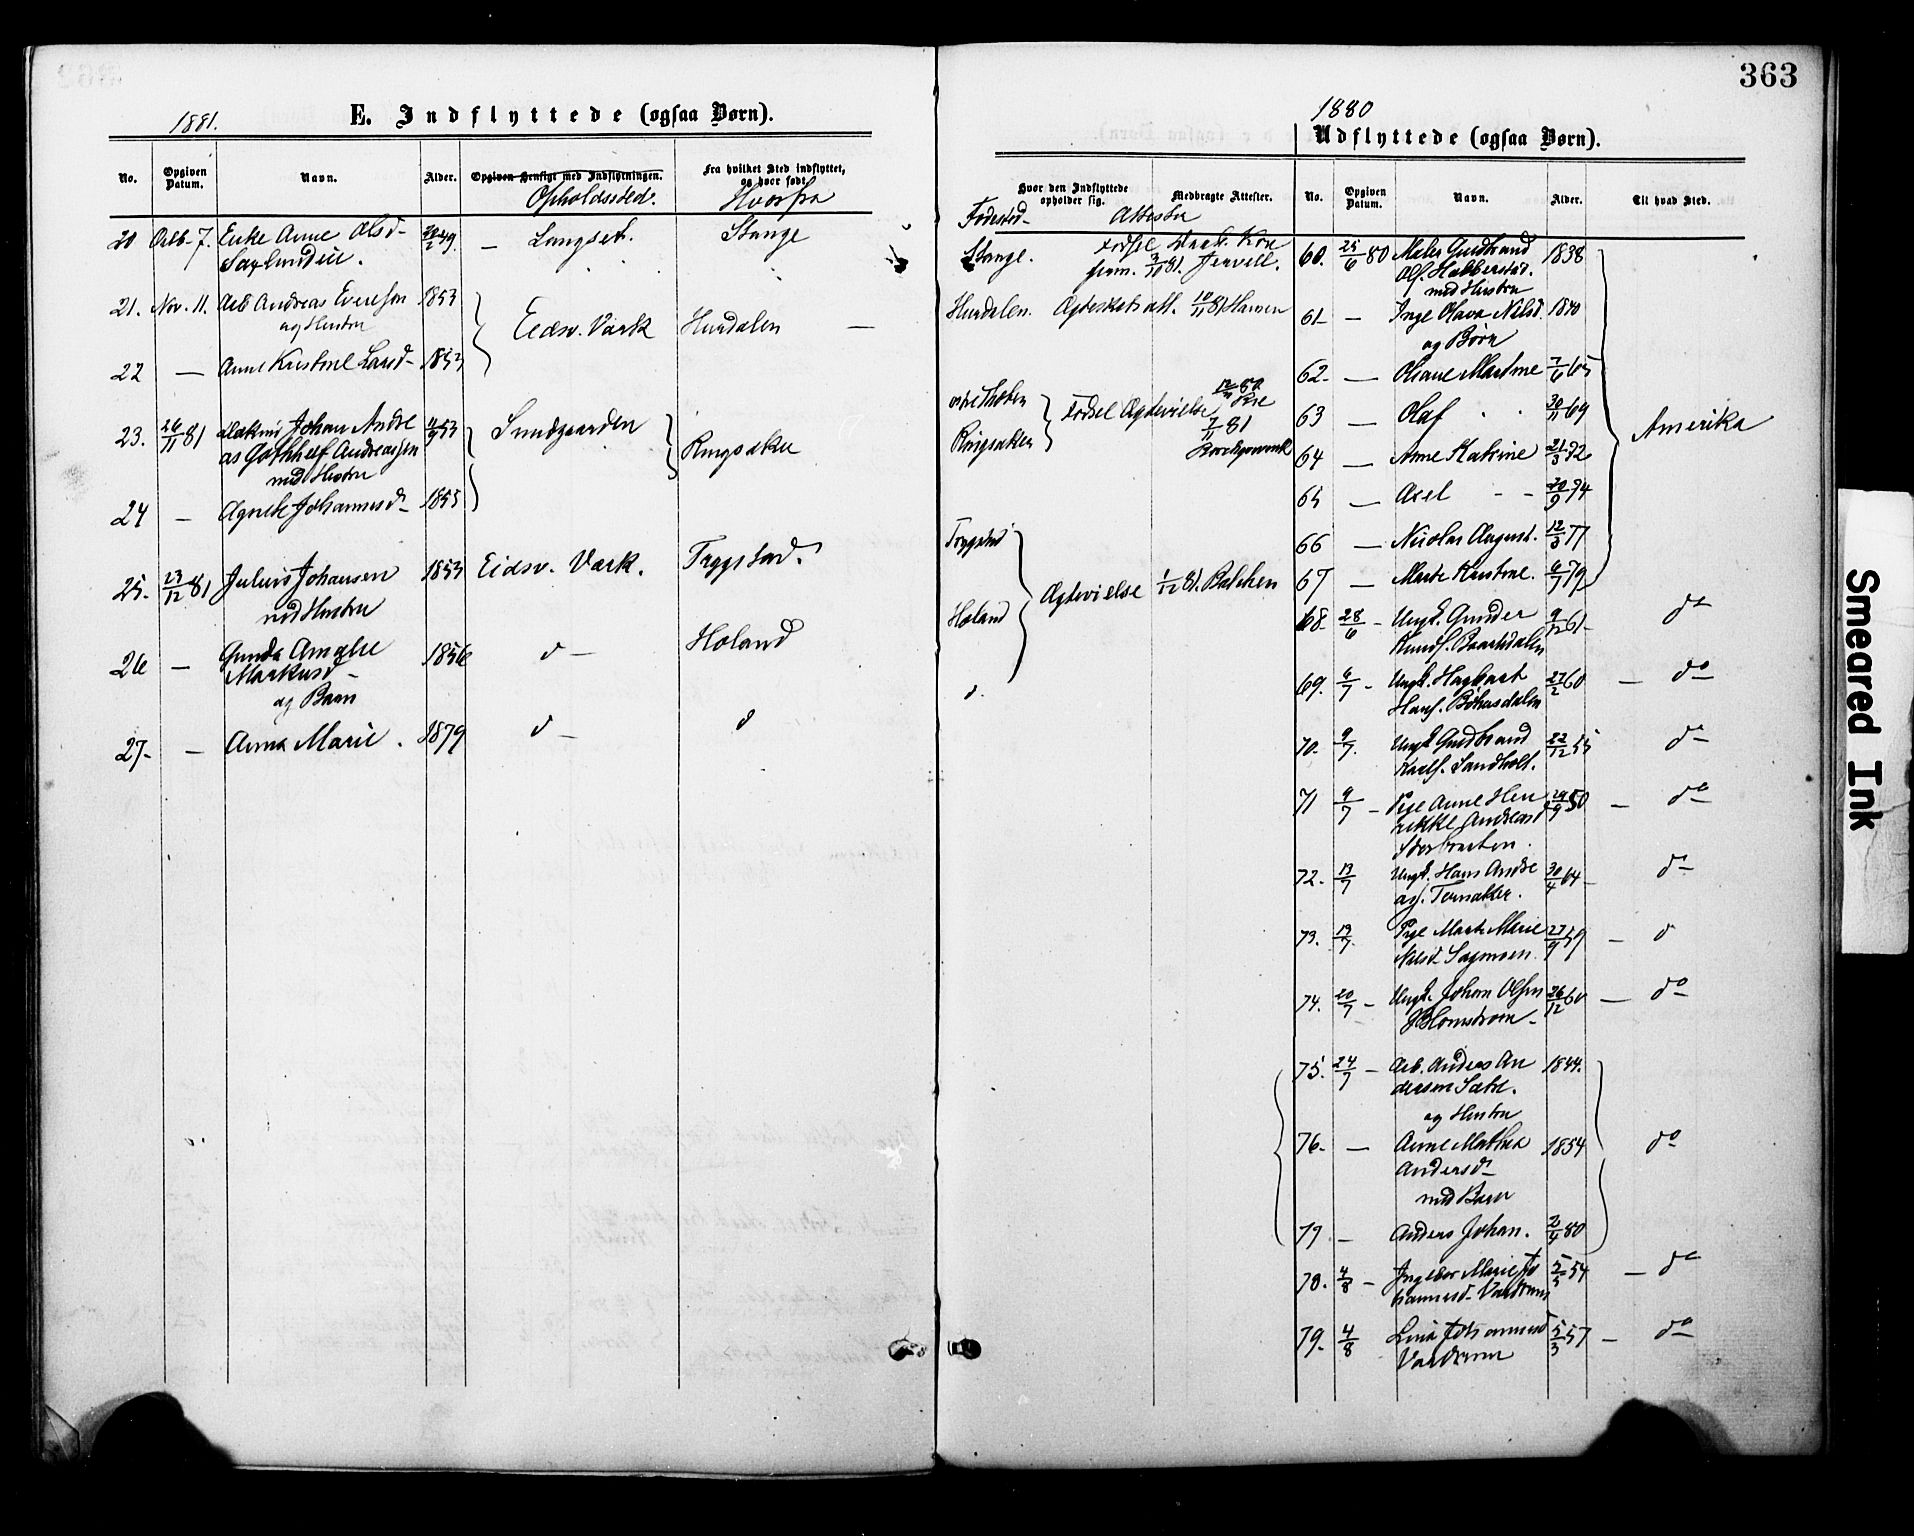 363
1881.
E. Indflyttede (ogsaa Børn).
No.
Opgiven Datum.
Navn.
Alder.
Opgiven Hensigt med Indflytningen.
Opholdssted.
Fra hvilket Sted indflyttet, og hvor født.
Hvorfra
20 Octb. 7. Enke Anne Olsd. 49. — Langset. Stange
21. Nov. 11. Arb. Andreas Evensen 1853
og Hustru
Eidsv. Værk Hurdalen —
22 — Anne Kristine Larsd. 1853
23. 26/11 81 Johan Andre 11/9 53 Sundgaarden
as Gothhelf Andreassen
med Hustru
Ringsaker
24 — Agnete Johannesd. 1855
25. 23/12 81 Julius Johansen 1853 Eidsv. Værk. Trygstad.
med Hustru
26 — Gunda Amalie 1856 d — Høland
Markusd.
og Barn
27. — Anna Marie. 1879 d — d
1880
Udflyttede (ogsaa Børn).
Hvor den Indflyttede opholder sig.
Medbragte Attester.
No.
Opgiven Datum.
Navn.
Alder.
Til hvad Sted.
Fødested
Attester
Stange.
Hurdalen. Hansen
Ringsaker
7/11 81
Trygstad
Høland
Ægtevielse 1/12 81. Balchen
d.
60. 25/6 80 Maler Gudbrand 1838
Ols. Habberstad.
med Hustru
61 — Inge Olava Nilsd. 1840
og Børn
62. — Oliane Martine 7/6 65
63 — Olaf 30/11 69
Amerika
64 — Anne Katrine 21/3 72
65 — Axel 20/9 74
66 — Nicolai August. 12/3 77
67 — Marte Kristine. 6/7 79
68. 28/6 - Ungk. Gunder 9/12 61 do
69. 6/7 - Ungk. Hagbart 27/2 60 — do
Hans.
70. 9/7. Ungk. Gudbrand 22/12 55 do
Karls. Sandholt.
71 9/7 - Pige Anne Hen 29/9 50 — do
rikke Andreasd
Storbraaten.
72. 13/7 Ungk. Hans Andre 30/4 64 do
as. Ternaker.
73. 13/7. Pige Marte Marie 27/9 59 — d
Nilsd. Sagmoen.
74. 20/7 - Ungk. Johan Olsen 26/12 60 — do
Blomstrøm.
75. 24/7 - Arb. Anders An 1844.
dersen Sætre.
og Hustru
76. — Anne Mathea 1854 do
Andersd.
med Barn
79. — Anders Johan. 2/4 80
78. 4/8 - Ingebor Marie Jo 5/5 54 — do
hannesd.
79. 4/8 Lina Johannesd 5/3 57 — do
Smeared Ink